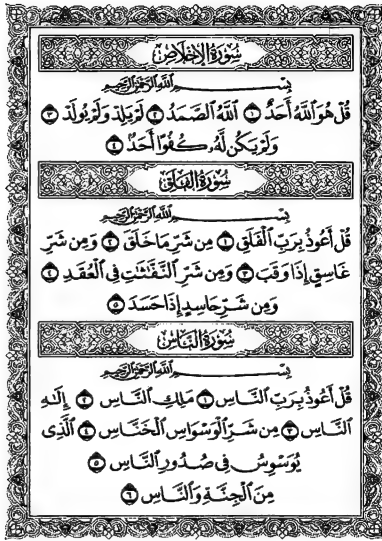 سُورَةُ الإِخْلَاصِ
بِسْمِ اللَّهِ الرَّحْمَٰنِ الرَّحِيمِ
قُلْ هُوَ ٱللَّهُ أَحَدٌ ١ ٱللَّهُ ٱلصَّمَدُ ٢ لَمْ يَلِدْ وَلَمْ يُولَدْ ٣
وَلَمْ يَكُن لَّهُۥ كُفُوًا أَحَدٌۢ ٤
سُورَةُ الفَلَقِ
بِسْمِ اللَّهِ الرَّحْمَٰنِ الرَّحِيمِ
قُلْ أَعُوذُ بِرَبِّ ٱلْفَلَقِ ١ مِن شَرِّ مَا خَلَقَ ٢ وَمِن شَرِّ
غَاسِقٍ إِذَا وَقَبَ ٣ وَمِن شَرِّ ٱلنَّفَّٰثَٰتِ فِى ٱلْعُقَدِ ٤
وَمِن شَرِّ حَاسِدٍ إِذَا حَسَدَ ٥
سُورَةُ النَّاسِ
بِسْمِ اللَّهِ الرَّحْمَٰنِ الرَّحِيمِ
قُلْ أَعُوذُ بِرَبِّ ٱلنَّاسِ ١ مَلِكِ ٱلنَّاسِ ٢ إِلَٰهِ
ٱلنَّاسِ ٣ مِن شَرِّ ٱلْوَسْوَاسِ ٱلْخَنَّاسِ ٤ ٱلَّذِى
يُوَسْوِسُ فِى صُدُورِ ٱلنَّاسِ ٥
مِنَ ٱلْجِنَّةِ وَٱلنَّاسِ ٦